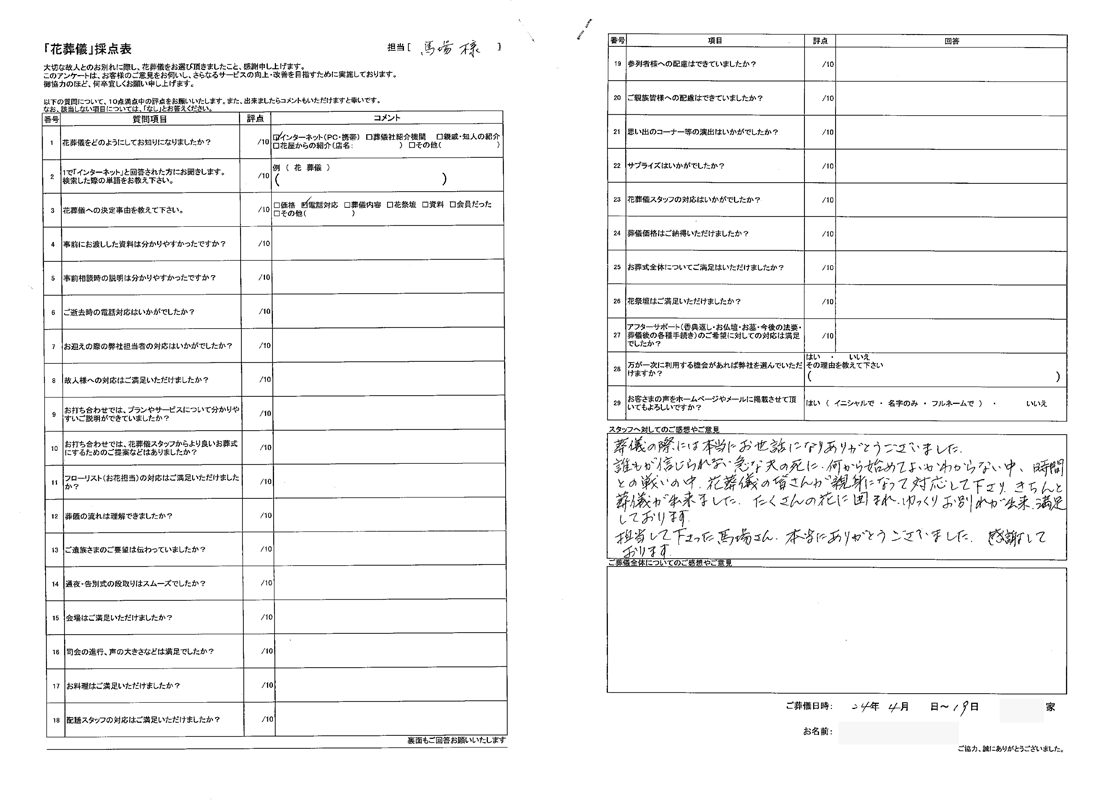 「花葬儀」採点表
担当［ 馬場 様 ］
大切な故人とのお別れに際し、花葬儀をお選び頂きましたこと、感謝申し上げます。
このアンケートは、お客様のご意見をお伺いし、さらなるサービスの向上・改善を目指すために実施しております。
御協力のほど、何卒宜しくお願い申し上げます。
以下の質問について、10点満点中の評点をお願いいたします。また、出来ましたらコメントもいただけますと幸いです。
なお、該当しない項目については、「なし」とお答えください。
番号 質問項目 評点 コメント
1 花葬儀をどのようにしてお知りになりましたか？ /10 ☑インターネット(PC・携帯) □葬儀社紹介機関 □親戚・知人の紹介
□花屋からの紹介(店名: ) □その他( )
2 1で「インターネット」と回答された方にお聞きします。
検索した際の単語をお教え下さい。 /10 例 （ 花 葬儀 ）
( )
3 花葬儀への決定事由を教えて下さい。 /10 □価格 ☑電話対応 □葬儀内容 □花祭壇 □資料 □会員だった
□その他( )
4 事前にお渡しした資料は分かりやすかったですか？ /10
5 事前相談時の説明は分かりやすかったですか？ /10
6 ご逝去時の電話対応はいかがでしたか？ /10
7 お迎えの際の弊社担当者の対応はいかがでしたか？ /10
8 故人様への対応はご満足いただけましたか？ /10
9 お打ち合わせでは、プランやサービスについて分かりや
すいご説明ができていましたか？ /10
10 お打ち合わせでは、花葬儀スタッフからより良いお葬式
にするためのご提案などはありましたか？ /10
11 フローリスト(お花担当)の対応はご満足いただけました
か？ /10
12 葬儀の流れは理解できましたか？ /10
13 ご遺族さまのご要望は伝わっていましたか？ /10
14 通夜・告別式の段取りはスムーズでしたか？ /10
15 会場はご満足いただけましたか？ /10
16 司会の進行、声の大きさなどは満足でしたか？ /10
17 お料理はご満足いただけましたか？ /10
18 配膳スタッフの対応はご満足いただけましたか？ /10
裏面もご回答お願いいたします
番号 項目 評点 回答
19 参列者様への配慮はできていましたか？ /10
20 ご親族皆様への配慮はできていましたか？ /10
21 思い出のコーナー等の演出はいかがでしたか？ /10
22 サプライズはいかがでしたか？ /10
23 花葬儀スタッフの対応はいかがでしたか？ /10
24 葬儀価格はご納得いただけましたか？ /10
25 お葬式全体についてご満足はいただけましたか？ /10
26 花祭壇はご満足いただけましたか？ /10
27 アフターサポート(香典返し・お仏壇・お墓・今後の法要・
葬儀後の各種手続き)のご希望に対しての対応は満足
でしたか？ /10
28 万が一次に利用する機会があれば弊社を選んでいただ
けますか？ はい ・ いいえ
その理由を教えて下さい
( )
29 お客さまの声をホームページやメールに掲載させて頂
いてもよろしいですか？ はい （ イニシャルで ・ 名字のみ ・ フルネームで ） ・ いいえ
スタッフへ対してのご感想やご意見
葬儀の際には本当にお世話になりありがとうございました。
誰もが信じられない急な夫の死に、何から始めてよいかわからない中、時間
との戦いの中、花葬儀の皆さんが親身になって対応して下さり、きちんと
葬儀が出来ました。たくさんの花に囲まれ、ゆっくりお別れが出来、満足
しております。
担当して下さった馬場さん、本当にありがとうございました。感謝して
おります。
ご葬儀全体についてのご感想やご意見
ご葬儀日時: 24年 4月 日～19日 家
お名前:
ご協力、誠にありがとうございました。